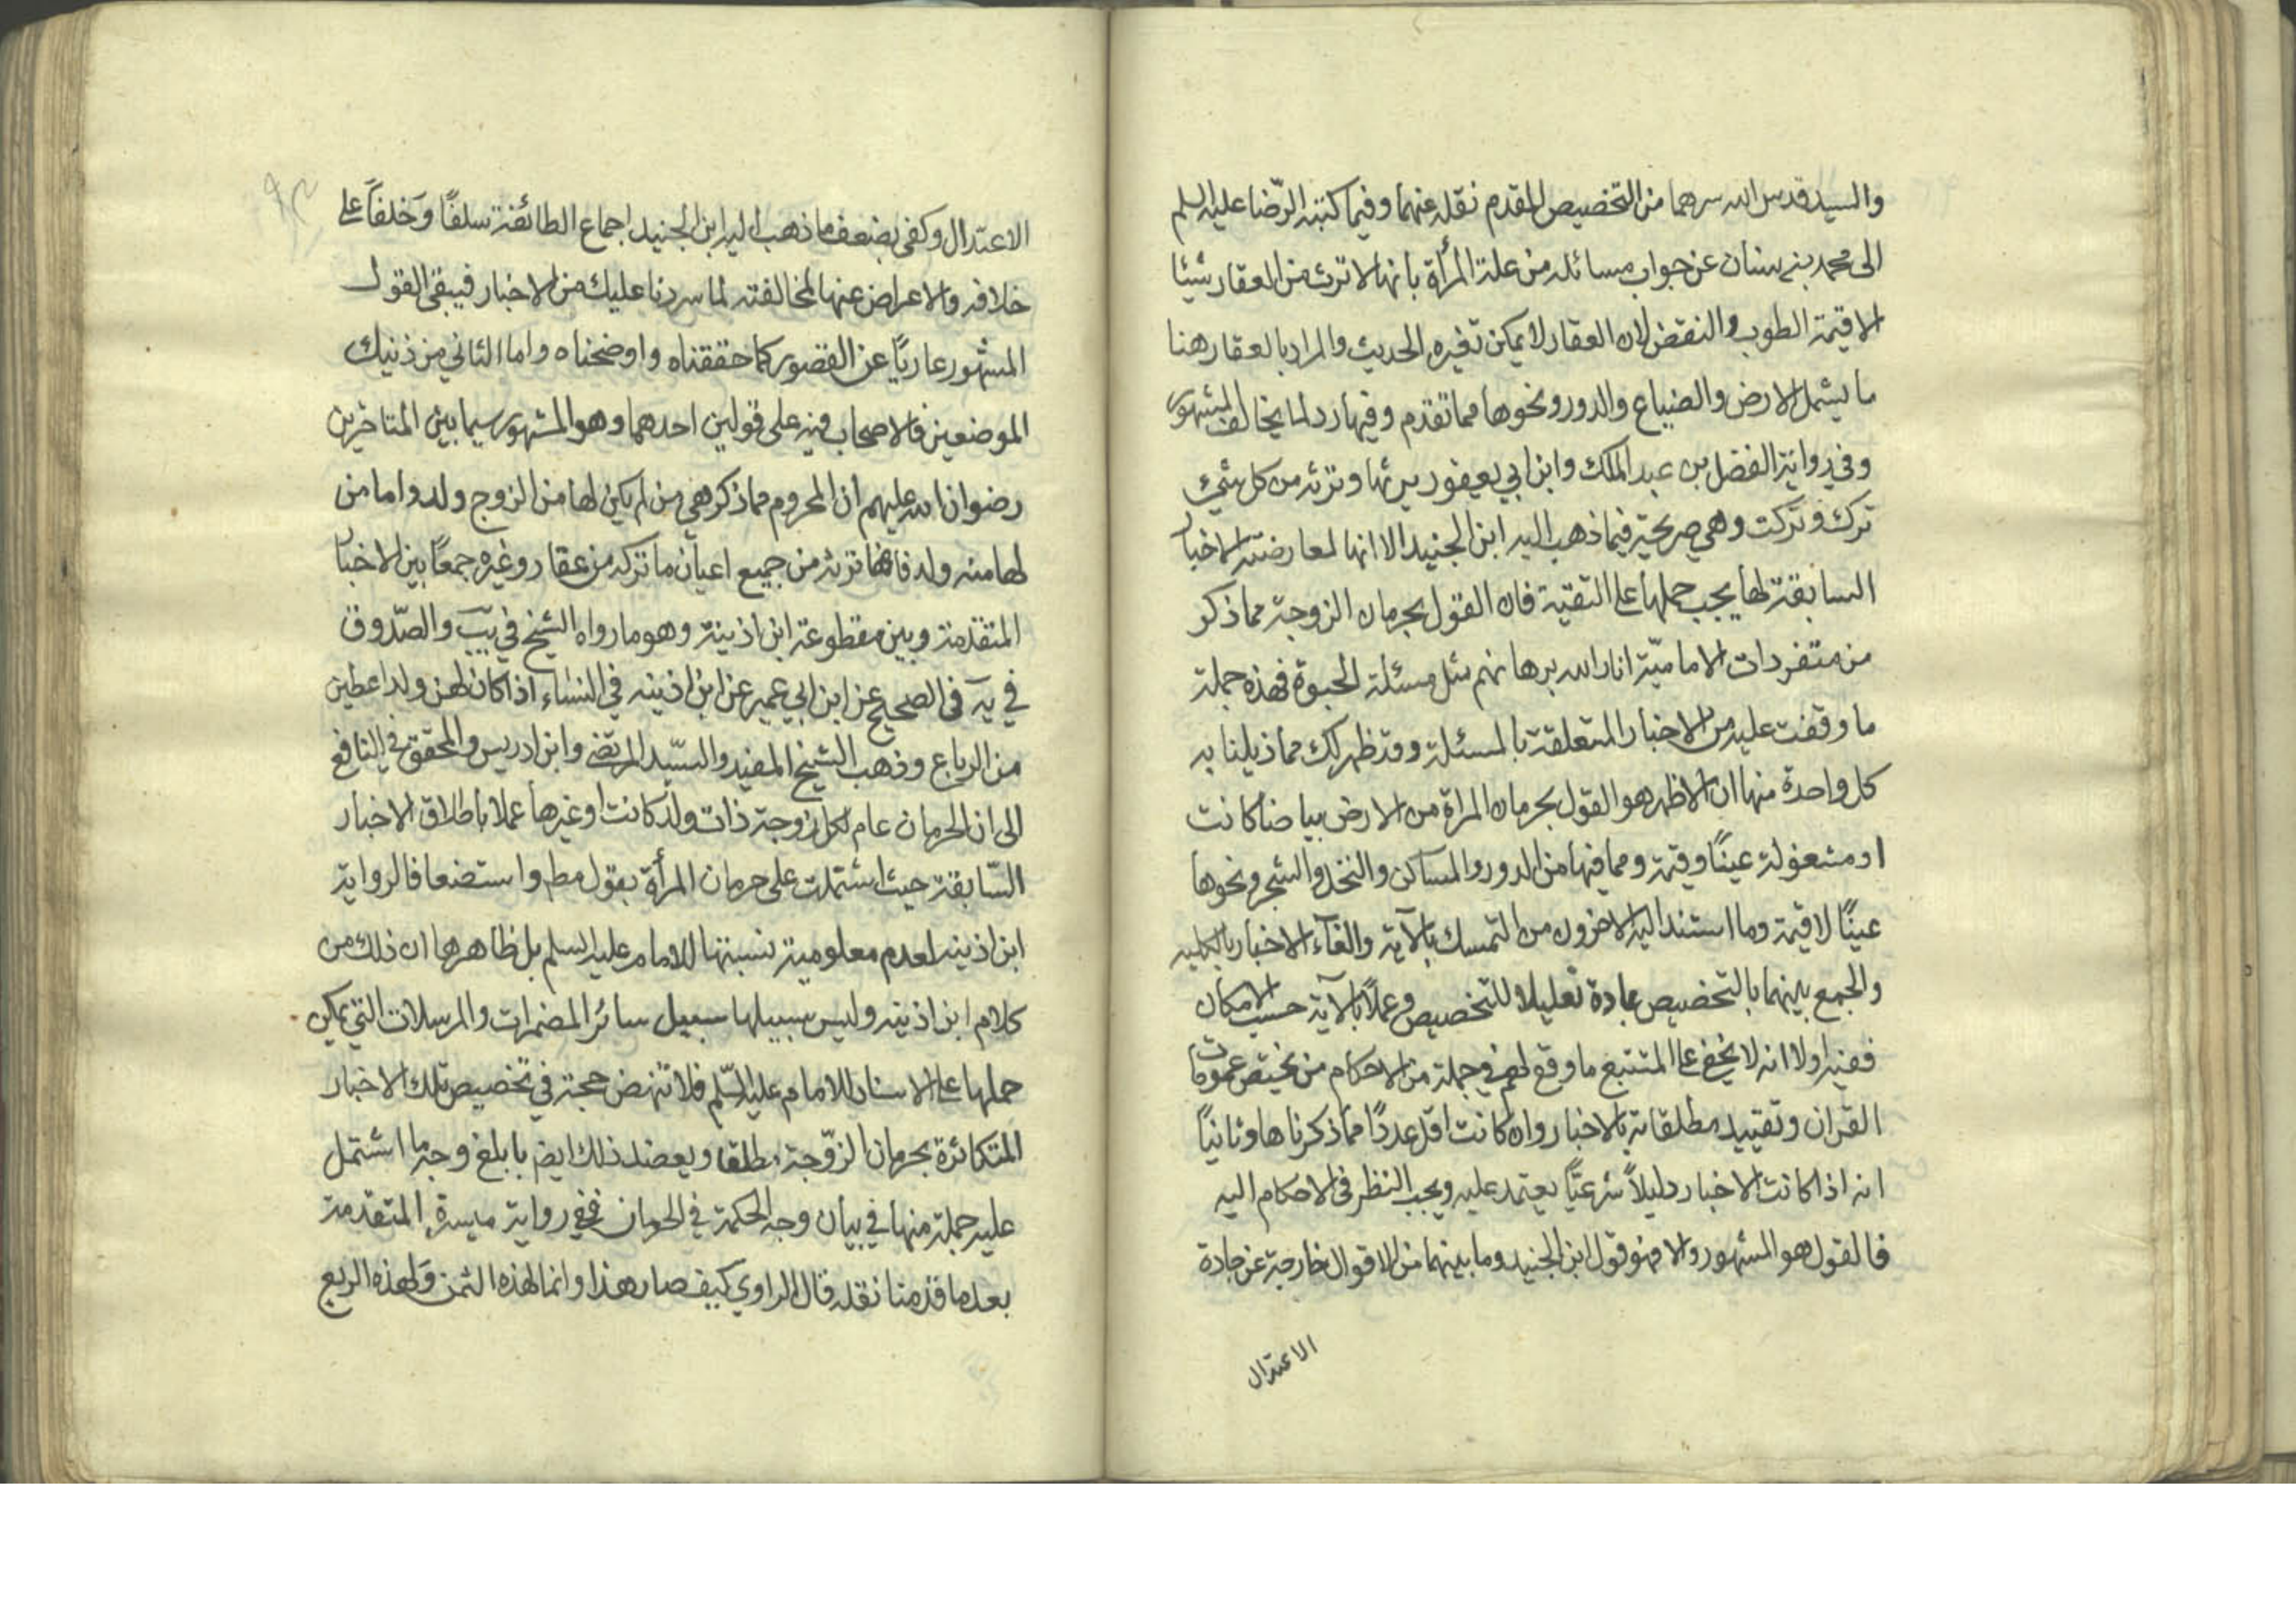 والسيد قدس الله سرهما من التخصيص المقدم نقله عنهما وفيما كتبه الرّضا عليه السلم
الى محمد بن سنان عن جواب مسائله من علة المرأة بانها لا ترث من العقار شيئا
الا قيمة الطوب والنقض لان العقار لا يمكن تغيره الحديث والمراد بالعقار هنا
ما يشمل الارض والضياع والدور ونحوها مما تقدم وفيها رد لما يخالف المشهور
وفي رواية الفضل بن عبد الملك وابن ابي يعفور يرثها وترثه من كل شيئ
ترك وتركت وهي صريحة فيما ذهب اليه ابن الجنيد الا انها لمعارضة الاخبار
السابقة لها يجب حملها على التقية فان القول بحرمان الزوجة مما ذكر
من متفردات الاماميّة انار الله برهانهم مثل مسئلة الحبوة فهذه جملة
ما وقفت عليه من الاخبار المتعلقة بالمسئلة وقد ظهر لك مما ذيلنا به
كل واحدة منها ان الاظهر هو القول بحرمان المراة من الارض بياضا كانت
او مشغولة عينًا وقيمة ومما فيها من الدور والمساكن والنخل والشجر ونحوها
عينًا لا قيمة وما استند اليه الاخرون من التمسك بالآية والغآء الاخبار بالكليه
والجمع بينهما بالتخصيص بمادة تعليلا للتخصيص وعملًا بالآية حسب الامكان
ففيه اولا انه لا يخفى على المتتبع ما وقع لهم في جملة من الاحكام من تخصيص عمومات
القران وتقييد مطلقاته بالاخبار وان كانت اقل عددًا مما ذكرناها وثانيًا
انه اذا كانت الاخبار دليلًا شرعيًّا يعتمد عليه ويجب النظر في الاحكام اليه
فالقول هو المشهور والا فهو قول ابن الجنيد وما بينهما من الاقوال خارجة عن جادة
الاعتدال
الاعتدال وكفى بضعف ما ذهب اليه ابن الجنيد اجماع الطائفة سلفًا وخلفًا على
خلافه والاعراض عنها لمخالفته لما سردنا عليك من الاخبار فيبقى القول
المشهور عاريًا عن القصور كما حققناه واوضحناه واما الثاني من ذنيك
الموضعين فالاصحاب فيه على قولين احدهما وهو المشهور سيما بين المتاخرين
رضوان الله عليهم ان المحروم مما ذكر هي من لم يكن لها من الزوج ولد واما من
لها منه ولد فانها ترثه من جميع اعيان ما تركه من عقار وغيره جمعًا بين الاخبار
المتقدمة وبين مقطوعة ابن اذينة وهو ما رواه الشيخ في يب والصّدوق
في يه في الصحيح عن ابن ابي عمير عن ابن اذينه في النساء اذا كان لهن ولد اعطين
من الرباع وذهب الشيخ المفيد والسيّد المرتضى وابن ادريس والمحقق في النافع
الى ان الحرمان عام لكل زوجة ذات ولد كانت او غيرها عملا باطلاق الاخبار
السّابقة حيث اشتملت على حرمان المرأة بقول مطم واستضعافا لرواية
ابن اذينه لعدم معلومية نسبتها للامام عليه السلم بل ظاهرها ان ذلك من
كلام ابن اذينه وليس سبيلها سبيل سائر المضمرات والمرسلات التي يمكن
حملها على الاسناد للامام عليه السّلم فلا تنهض حجة في تخصيص تلك الاخبار
المتكاثرة بحرمان الزّوجة مطلقا ويعضد ذلك ايضم بابلغ وجه ما اشتمل
عليه جملة منها في بيان وجه الحكمة في الحرمان ففي رواية ميسرة المتقدمة
بعد ما قدمنا نقله قال الراوي كيف صار هذا وانما لهذه الثمن ولهذه الربع